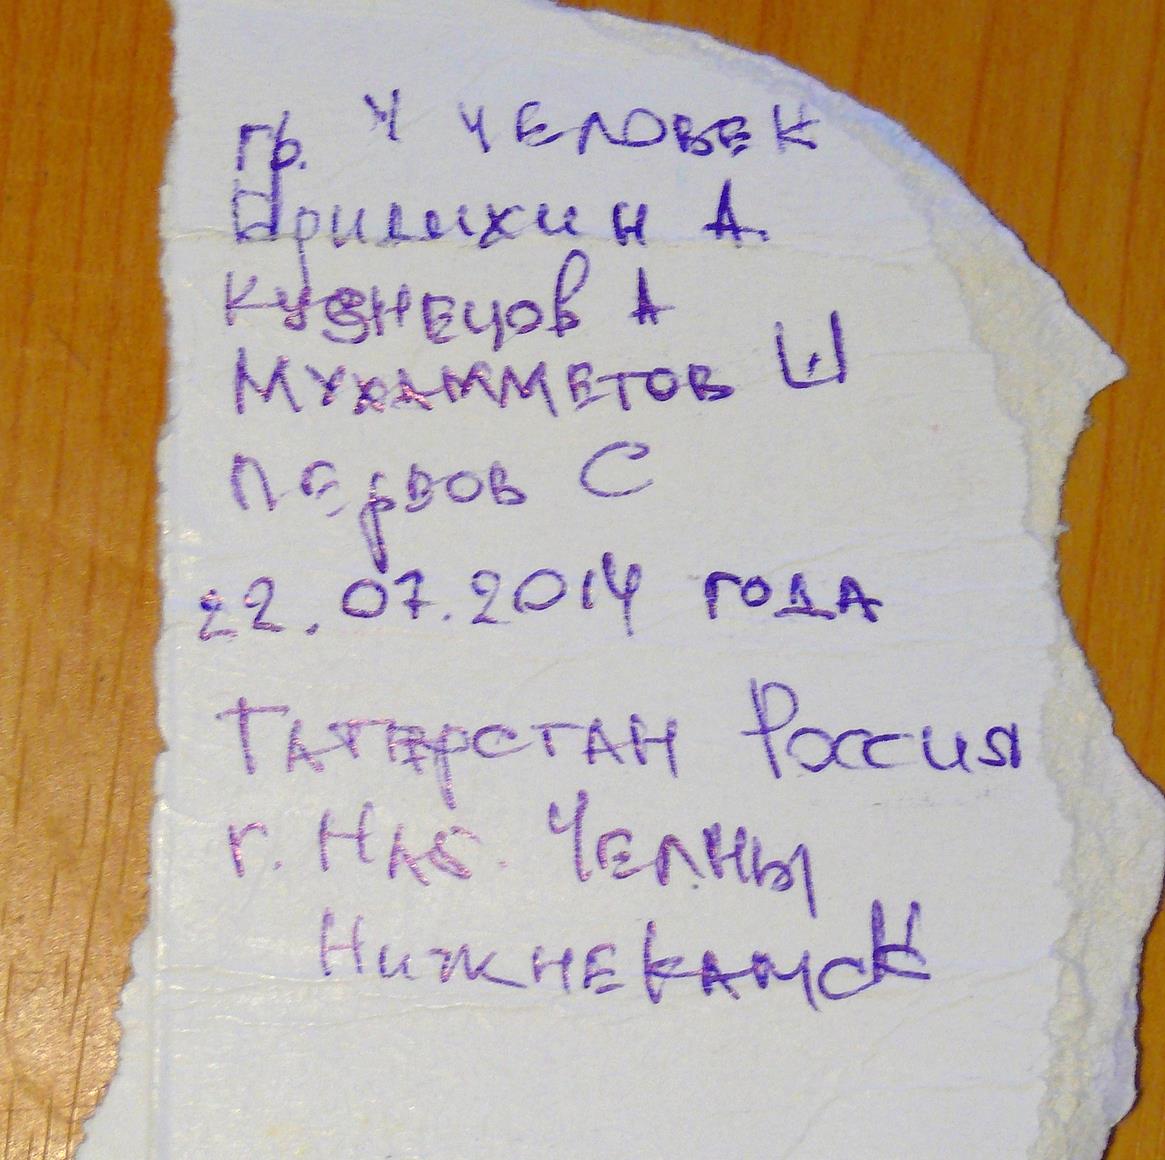 гр. 4 ЧЕЛОВЕК
А.
КУЗНЕЦОВ А
МУХАММЕТОВ И
ПЕРВОВ С
22.07.2014 ГОДА
ТАТАРСТАН РОССИЯ
г. НАБ. ЧЕЛНЫ
НИЖНЕКАМСК